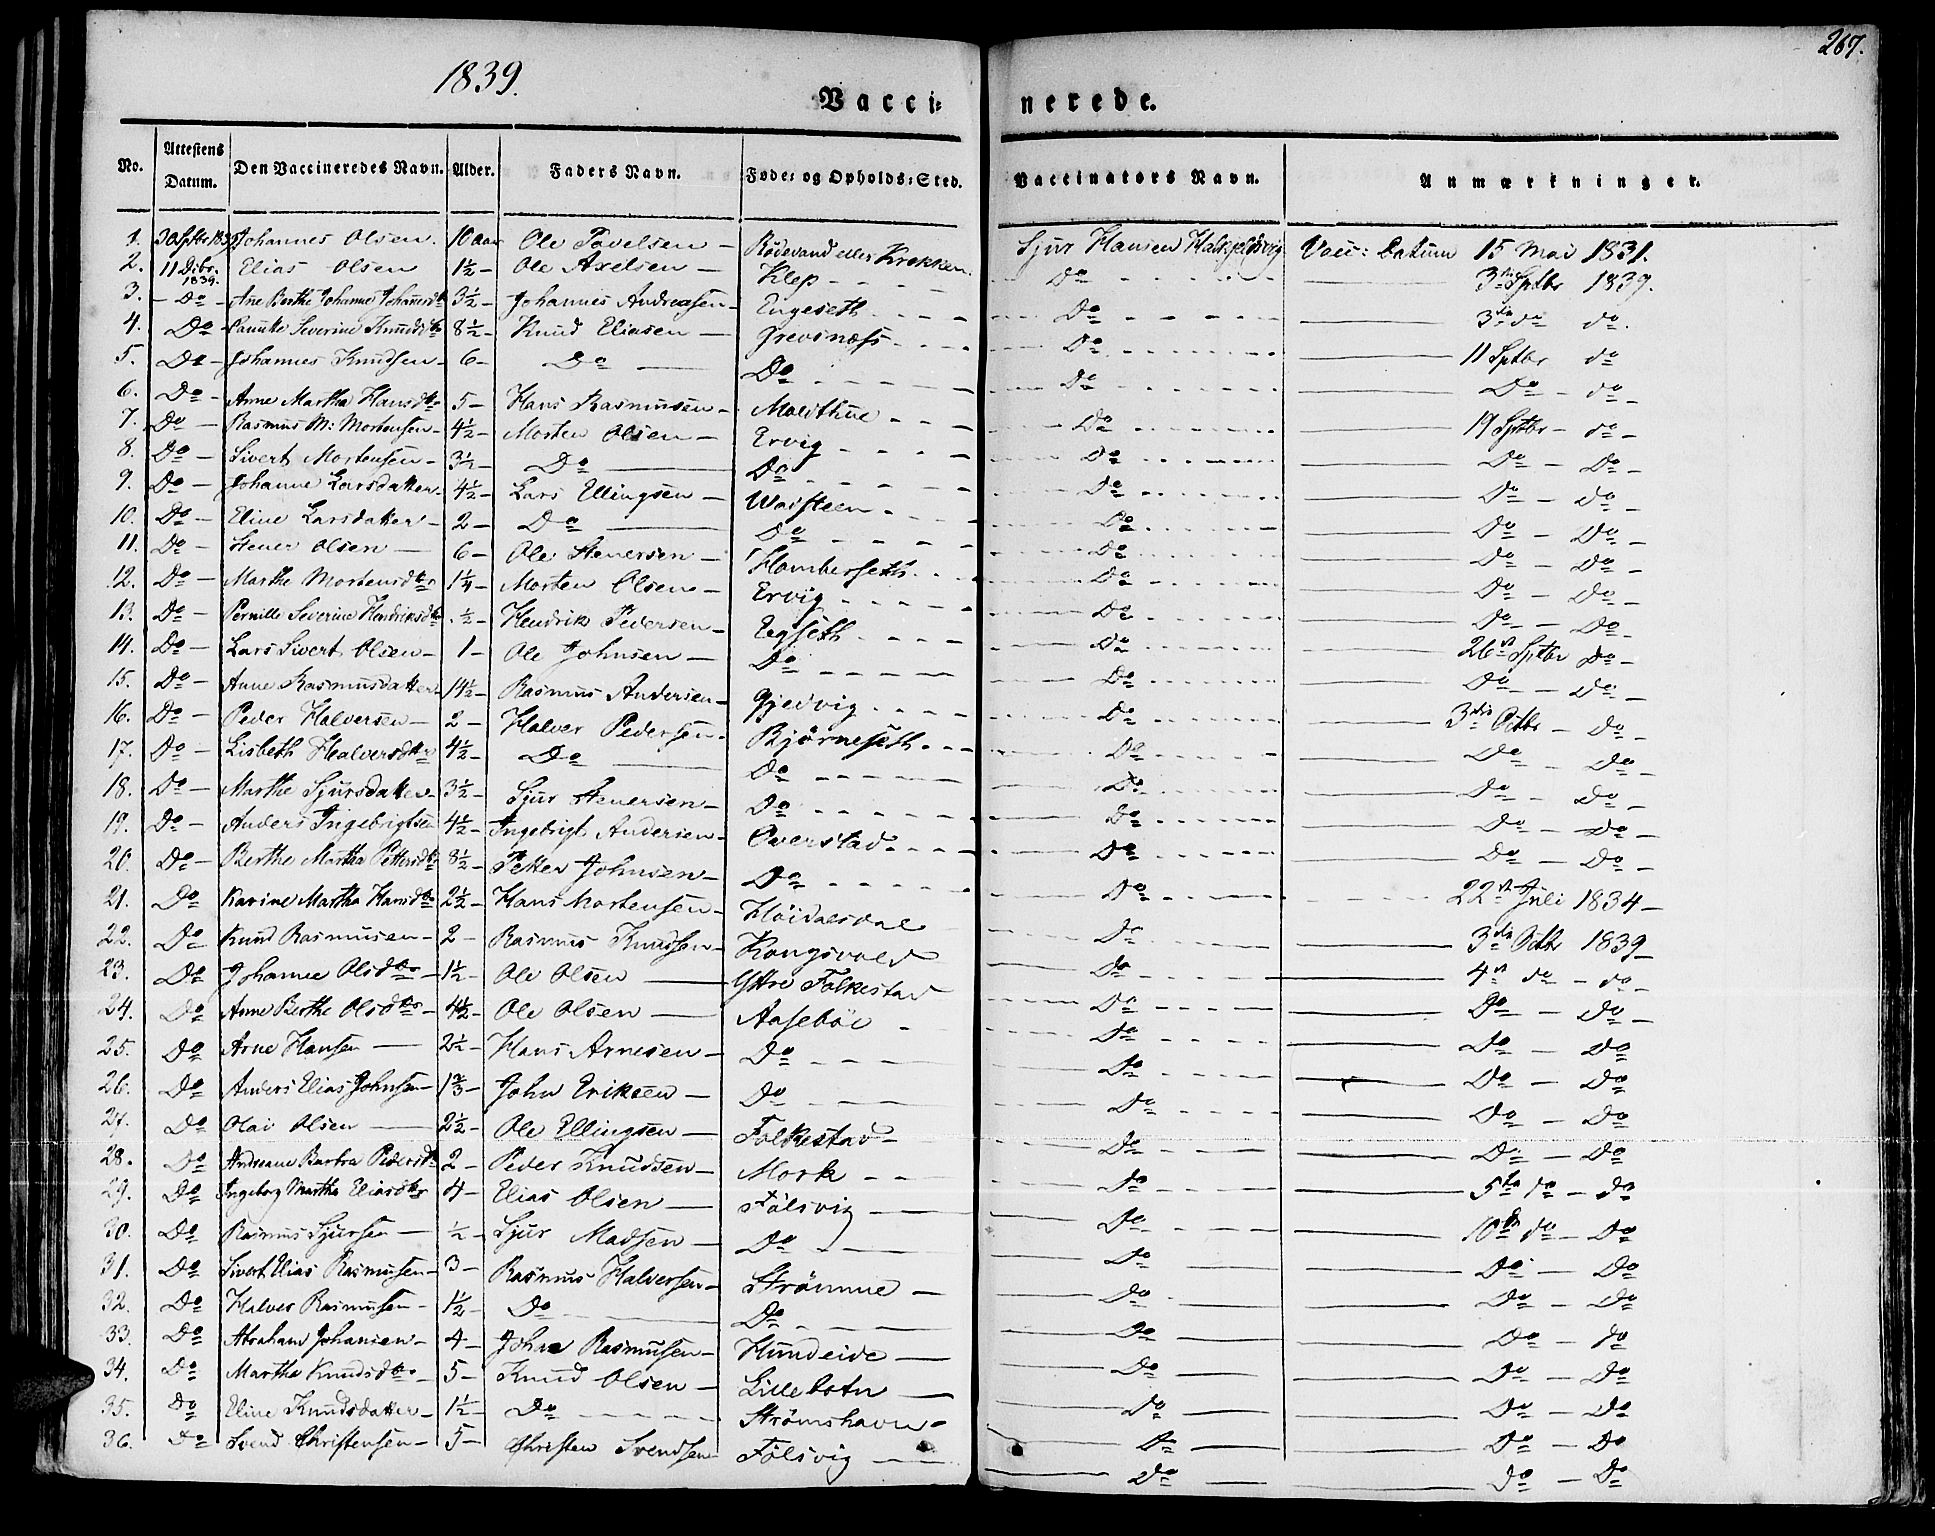 1839.
267.
Vacci- nerede.
No. Attestens Datum. Den Vaccineredes Navn. Alder. Faders Navn. Føde- og Opholds-Sted. Vaccinators Navn. Anmærkninger.
1. 30 Sptbr 1839 Johannes Olsen. 10 aar Ole Povelsen — Rödevand eller Krekken Sjur Hansen Vacc: Datum 15 Mai 1831.
2. 11 Dcbr. 1839. Elias Olsen 1½ — Ole Axelsen — Klep Do 3die Sptbr 1839.
3. — Do — Ane Berthe Johanne Johansdtr 3½ — Johannes Andreasen — Engeseth Do 3die do do.
4. Do — Severine Knudsdtr 8½ — Knud Eliasen — Grevsnæss Do 11 Sptbr do
5. Do — Johannes Knudsen — 6 — Do — Do Do Do — do —
6. Do — Anne Martha Hansdtr 5 — Hans Rasmusen — Moldthue Do 19 Sptbr — do —
7. Do — Rasmus M: Mortensen — 4½ — Morten Olsen — Ervig Do Do — Do —
8. Do — Sivert Mortensen — 3½ — Do — Do Do Do — do —
9. Do — Johanne Larsdatter 4½ — Lars Ellingsen — Watsteen Do Do — Do —
10. Do — Eline Larsdatter — 2 — Do — Do Do Do — Do —
11. Do — Stener Olsen — 6 — Ole Stenersen — Hamberseth Do Do — Do —
12. Do — Marthe Mortensdtr 1¼ — Morten Olsen — Ervig Do Do — Do —
13. Do — Pernille Severine Hendriksdtr ½ — Hendrik Pedersen — Eegseth Do 26de Sptbr Do —
14. Do — Lars Sivert Olsen — 1 — Ole Johnsen — Do Do Do — Do —
15. Do — Anne Rasmusdatter 14½ — Rasmus Andersen — Gjedvig Do 3die Octbr — Do —
16. Do — Peder Halversen — 2 — Halver Pedersen — Björneseth Do Do — Do —
17. Do — Lisbeth Halversdtr 4½ — Do — Do Do Do — Do —
18. Do — Marthe Sjursdatter 3½ — Sjur Stenersen — Do Do Do — Do —
19. Do — Anders Ingebrigtsen 4½ — Ingebrigt Andersen — Overstad Do Do — Do —
20. Do — Berthe Martha Pettersdtr 8½ — Petter Johnsen — Do Do 22de Juli 1834 —
21. Do Karine Martha Hansdtr 2½ — Hans Mortensen — Höidalsdal Do 3die Octbr 1839 —
22. Do Knud Rasmusen — 2 — Rasmus Knudsen — Kongsvold Do 4de do — do —
23. Do Johanne Olsdtr — 1½ — Ole Olsen — Yttre Folkestad Do Do — Do —
24. Do Anne Berthe Olsdtr — 4½ — Ole Olsen — Aasebøe Do Do — Do
25. Do Arne Hansen — 2½ — Hans Arnesen — Do Do Do — Do
26. Do Anders Elias Johnsen — 1⅔ — John Eriksen — Do Do Do — Do
27. Do Olai Olsen — 2½ — Ole Ellingsen — Folkestad — Do Do — Do
28. Do Andreane Barbra Pedersdtr 2 — Peder Knudsen — Mork Do 5te do — do
29. Do Ingeborg Martha Eliasdtr 4 — Elias Olsen — Fölsvig Do 10de do — Do
30. Do Rasmus Sjursen — ½ — Sjur Madsen — Do Do Do — Do
31. Do Sivert Elias Rasmusen — 3 — Rasmus Halversen — Strömme Do Do — Do
32. Do Halver Rasmusen — 1½ Do Do Do Do — do
33. Do Abraham Johansen — 4 — Johan Rasmusen — Hundeide Do Do — Do
34. Do Martha Knudsdtr 5 — Knud Olsen — Lillebotn Do Do — Do
35. Do Eline Knudsdatter — 1½ — Do Strömshavn — Do Do — Do
36. Do Svend Christensen — 5 — Christen Svendsen Fölsvig Do Do — Do